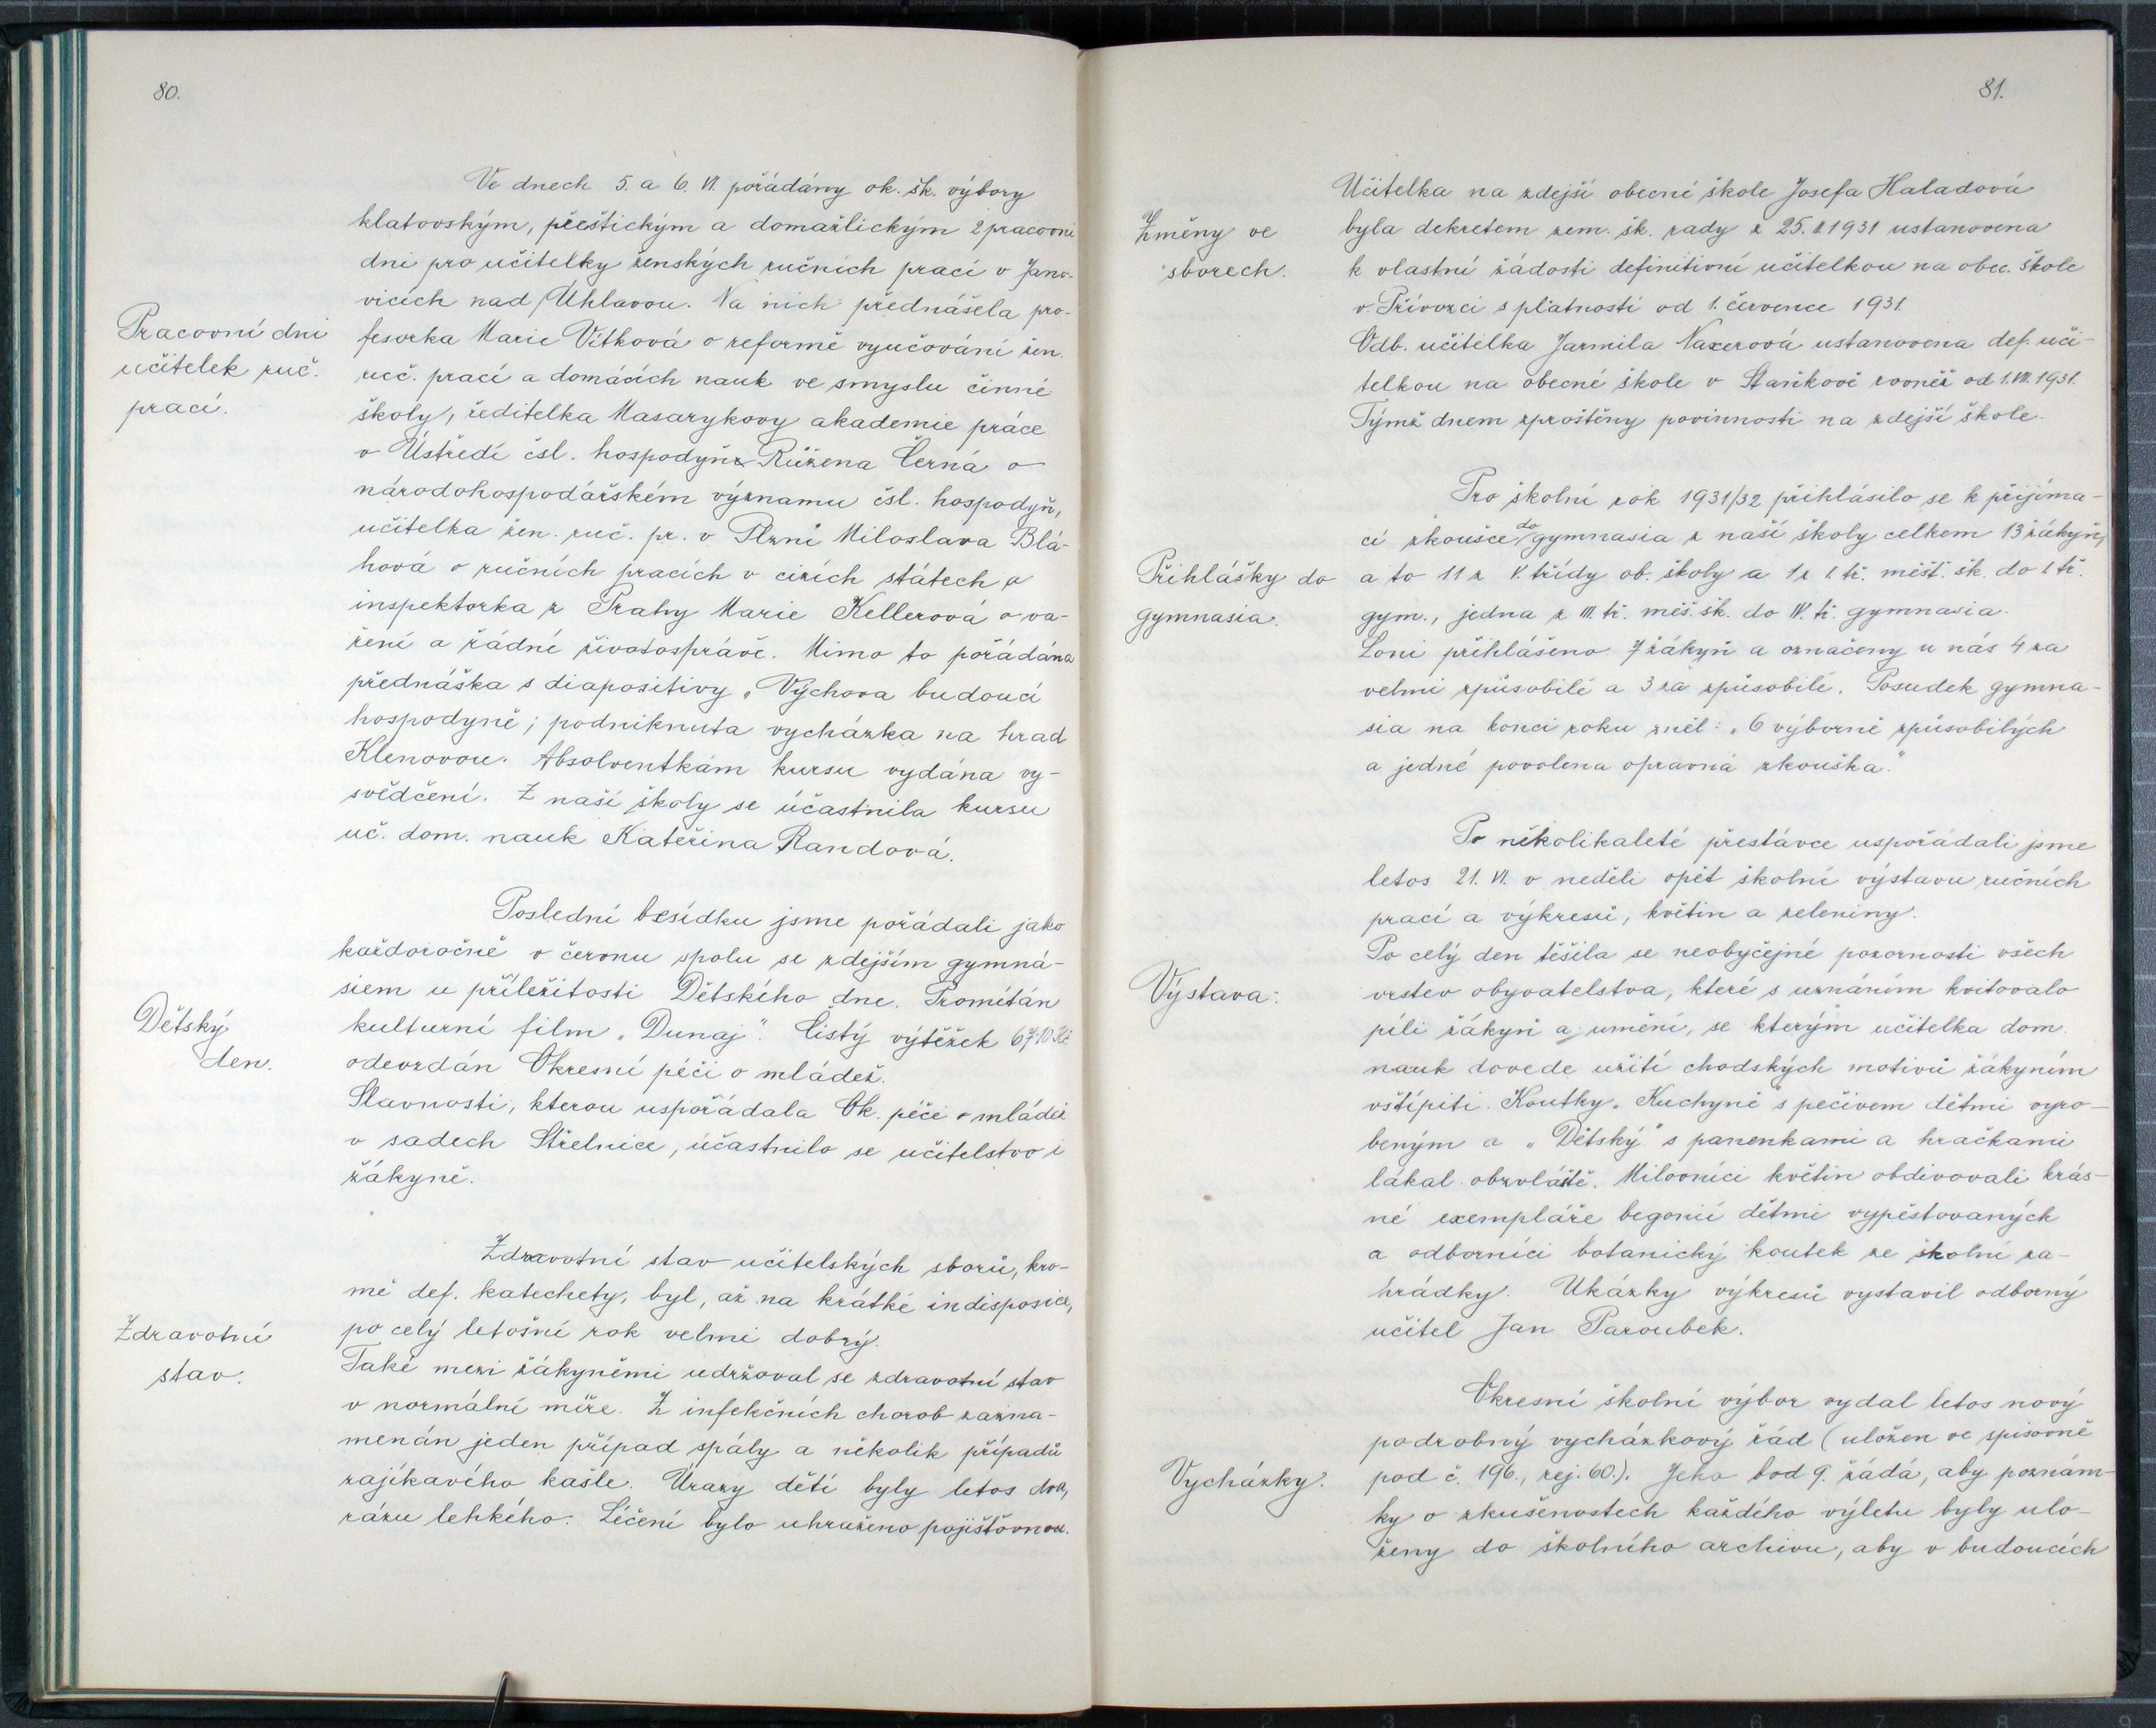 80.
Ve dnech 5. a 6. VI. pořádány ok. šk. výbory
klatovským, přeštickým a domažlickým 2 pracovní
dni pro učitelky ženských ručních prací v Jano-
vicích nad Úhlavou. Na nich přednášela pro-
Pracovní dni
učitelek ruč.
prací.
fesorka Marie Vítková o reformě vyučování žen.
ruč. prací a domácích nauk ve smyslu činné
školy, ředitelka Masarykovy akademie práce
v Ústředí čsl. hospodyň Růžena Černá o
národohospodářském významu čsl. hospodyň,
učitelka žen. ruč. pr. v Plzni Miloslava Blá-
hová o ručních pracích v cizích státech a
inspektorka z Prahy Marie Kellerová o va-
ření a řádné životosprávě. Mimo to pořádána
přednáška s diapositivy „Výchova budoucí
hospodyně; podniknuta vycházka na hrad
Klenovou. Absolventkám kursu vydána vy-
svědčení. Z naší školy se účastnila kursu
uč. dom. nauk Kateřina Randová.
Poslední besídku jsme pořádali jako
každoročně v červnu spolu se zdejším gymná-
siem u příležitosti Dětského dne. Promítán
Dětský
den.
kulturní film „Dunaj“. Čistý výtěžek 67·10 Kč
odevzdán Okresní péči o mládež.
Slavnosti, kterou uspořádala Ok. péče o mládež
v sadech Střelnice, účastnilo se učitelstvo i
žákyně.
Zdravotní stav učitelských sborů, kro-
mě def. katechety, byl, až na krátké indisposice,
Zdravotní
stav.
po celý letošní rok velmi dobrý.
Také mezi žákyněmi udržoval se zdravotní stav
v normální míře. Z infekčních chorob zazna-
menán jeden případ spály a několik případů
zajíkavého kašle. Úrazy dětí byly letos
rázu lehkého. Léčení bylo uhraženo pojišťovnou.
81.
Změny ve
sborech.
Učitelka na zdejší obecné škole Josefa Haladová
byla dekretem zem. šk. rady z 25. 1931 ustanovena
k vlastní žádosti definitivní učitelkou na obec. škole
v Přívozci s platností od 1. července 1931.
Odb. učitelka Jarmila Naxerová ustanovena def. uči-
telkou na obecné škole v Staňkově rovněž od 1. VII. 1931.
Týmž dnem zproštěny povinnosti na zdejší škole.
Přihlášky do
gymnasia.
Pro školní rok 1931/32 přihlásilo se k přijíma-
cí zkoušce do gymnasia z naší školy celkem 13 žákyň,
a to 11 z V. třídy ob. školy a 1 z I. tř. měšť. šk. do I. tř.
gym., jedna z III. tř. měš. šk. do IV. tř. gymnasia.
Loni přihlášeno 7 žákyň a označeny u nás 4 za
velmi způsobilé a 3 za způsobilé. Posudek gymna-
sia na konci roku zněl: „6 výborně způsobilých
a jedné povolena opravná zkouška.“
Po několikaleté přestávce uspořádali jsme
letos 21. VI. v neděli opět školní výstavu ručních
prací a výkresů, květin a zeleniny.
Výstava:
Po celý den těšila se neobyčejné pozornosti všech
vrstev obyvatelstva, které s uznáním kvitovalo
píli žákyň a umění, se kterým učitelka dom.
nauk dovede užití chodských motivů žákyním
vštípiti. Koutky „Kuchyně s pečivem dětmi vyro-
beným a „Dětský“ s panenkami a hračkami
lákal obzvláště. Milovníci květin obdivovali krás-
né exempláře begonií dětmi vypěstovaných
a odborníci botanický koutek ze školní za-
hrádky. Ukázky výkresů vystavil odborný
učitel Jan Paroubek.
Vycházky.
Okresní školní výbor vydal letos nový
podrobný vycházkový řád (uložen ve spisovně
pod č. 196., rej. 60.). Jeho bod 9. žádá, aby poznám-
ky o zkušenostech každého výletu byly ulo-
ženy do školního archivu, aby v budoucích